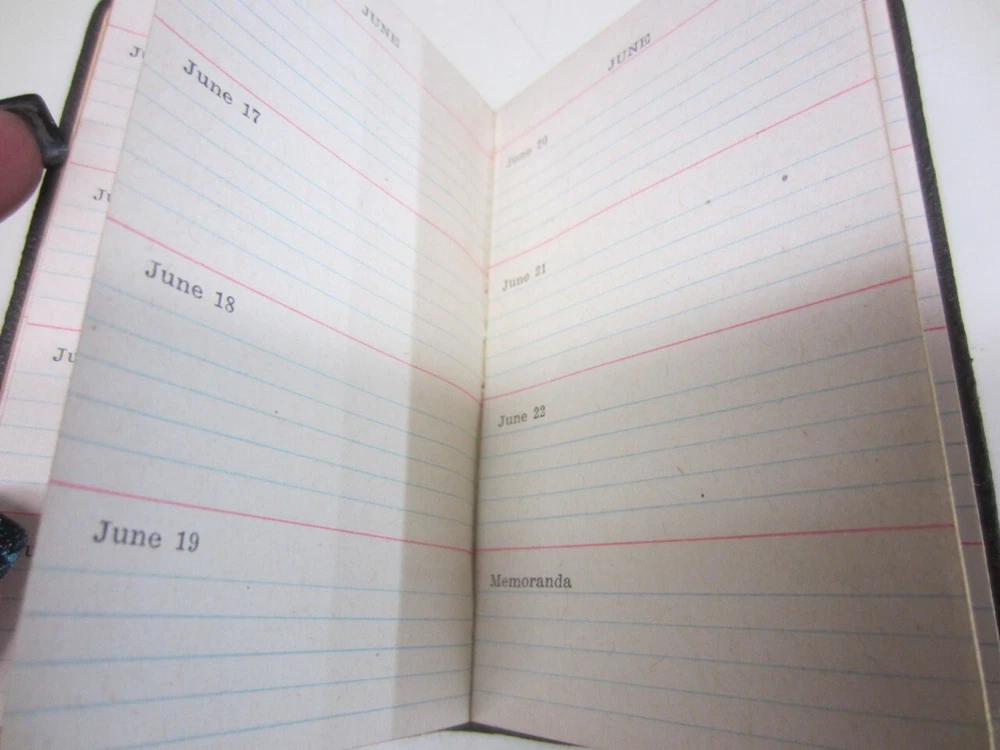 JUNE
June 17
June 18
June 19
JUNE
June 20
June 21
June 22
Memoranda